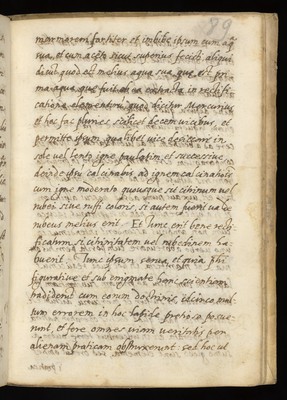 89
marmorem fortiter et imbibe ipsum cum aq
sua, et cum aceto sicut superius fecisti aliqui
dicunt quod est melius aqua sua que est pri
ma aqua que fuit ab ea extracta in rectifi
catione elementorum quod dicitur Mercurius
et hoc fac plures scilicet decem vicibus et
permitte ipsum qualibet vice desiccari in
sole vel lento igne paulatim et successive
deinde ipsum calcinabis ad ignem calcinationis
cum igne moderato quousque sit citrinum vel
rubei sive rufi coloris, si autem fuerit valde
rubeus melius erit. Et tunc erit bene recti
ficatum si citrinitatem vel rubedinem ha
buerit. Tunc ipsum serva, et quia phi
figurative et sub enigmate hanc scientiam
tradiderunt cum eorum doctrinis, idcirco mul
tum errorem in hoc lapide pretioso posue
runt, et fere omnes viam veritatis per
alienam praticam obstruxerunt. sed hoc ul